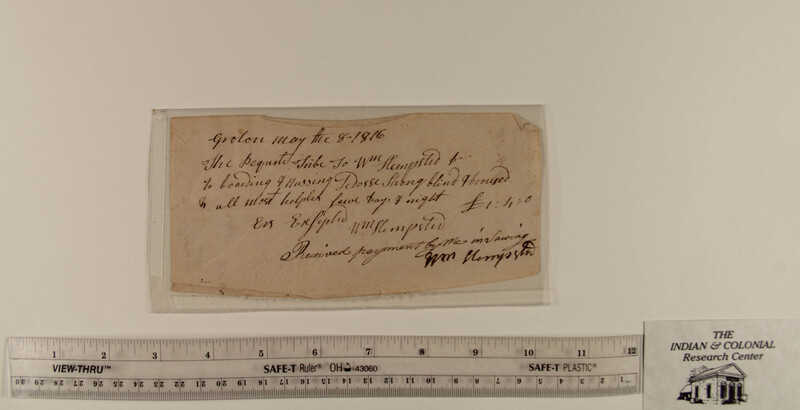 Groton may the 8-1816
The Pequit Tribe To Wm Hempsted Dr
to boarding & Nursing Tedorse Strong blind & bruised
& all most helples fore days & night £1:4:0
Ers Exsepted Wm Hempsted
Received payment by Me in
Wm Hempsted
1 2 3 4 5 6 7 8 9 10 11 12
VIEW-THRU™ SAFE-T Ruler® OH 43060 SAFE-T PLASTIC®
30 29 28 27 26 25 24 23 22 21 20 19 18 17 16 15 14 13 12 11 10 9 8 7 6 5 4 3 2 1
THE
INDIAN & COLONIAL
Research Center